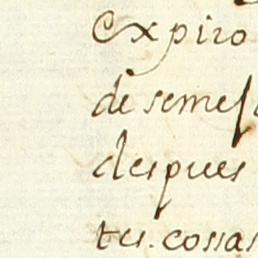 Expiro
de semes
despues
tes. cossas